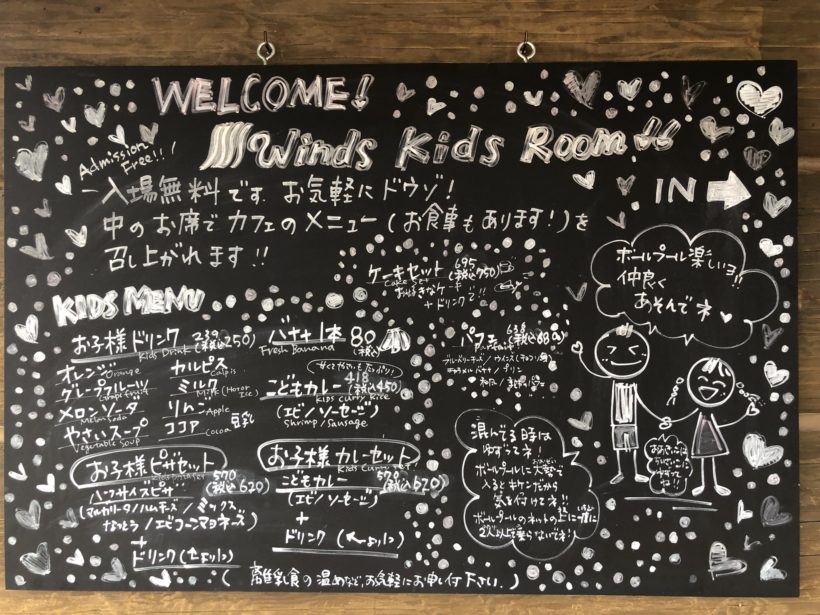 WELCOME!
Winds Kids Room!!
Admission Free!!
入場無料です。お気軽にドウゾ!
中のお席でカフェのメニュー(お食事もあります!)を
召し上がれます!!
IN
ケーキセット 695 (税込750)
Cake Set
お好きなケーキ
+ドリンクで!!
KIDS MENU
お子様ドリンク 239 (税込250)
Kids Drink
オレンジ Orange
カルピス Calpis
グレープフルーツ Grapefruit
ミルク Milk (Hot or Ice)
メロンソーダ Melon Soda
りんご Apple
やさいスープ Vegetable Soup
ココア Cocoa 豆乳
バナナ1本 80 (税込)
Fresh Banana
こどもカレー 418 (税込450)
Kids Curry Rice
(エビ/ソーセージ)
Shrimp/Sausage
パフェ 638
Parfait
お子様ピザセット 570 (税込620)
ハーフサイズピザ
(マルゲリータ/ハムチーズ/ミックス
なっとう/エビコーンマヨネーズ)
+
ドリンク(
お子様カレーセット
Kids Curry Set
こどもカレー 570 (税込620)
(エビ/ソーセージ)
+
ドリンク(
(離乳食の温めなど、お気軽にお申し付下さい。)
ボールプール楽しいヨ!!
仲良く
あそんでネ
混んでる時は
ゆずってネ!
ボールプールに大勢で
入るとキケンだから
気を付けてネ!!
ボールプールのネットの上に一度に
2人以上で乗らないでネ!